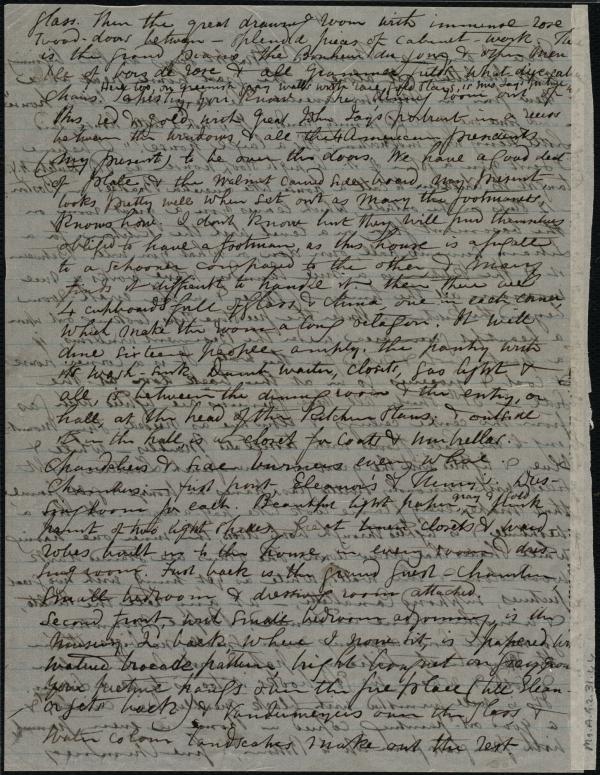 glass. Then the great drawing room with immense rose
wood-doors between - splendid pieces of cabinet-work. The
is the grand Piano, the Bonheur du Jour, & other
of bois de rose & all Grammer field's
Chairs. Tapestry, you know. The dining room out of
this, red & gold, with great John Jay's portrait in a recess
between the windows & all the 4 American presidents
(my present) to be over the doors. We have a good deal
of plate, & the walnut carved side board, my present
looks pretty well when set out as Mary the footmaness,
knows how. I don't know but they will find themselves
obliged to have a footman, as this house is a
to a schooner compared to the other & Mary
finds it difficult to handle it. Then there are
4 cupboards full of glass & china one in each corner
which make the room a long octagon. It will
dine sixteen people amply. The pantry with
its wash-sink, Dumb waiter, closets, gas light &
all, is between the dining room & the entry, or
hall, at the head of the Kitchen stairs, & outside
it in the hall is a closet for coats & umbrellas.
Chandeliers & side burners every where.
Chambers. First front Eleanor's & Henry's. Dres-
sing room for each. Beautiful light paper, gray & gold & pink
paint of two light shades. Great linen closets & ward
robes built in to the house in every room & dres-
sing room. First back is the grand Guest-Chamber
small bedroom & dressing room attached.
Second front, with small bedroom adjoining, is the
Nursery. 2d back, where I now sit, is papered in
watered brocade pattern bright bouquet on grey ground
your picture hangs over the fire place (till Elean-
or gets back) & Vandumeyers over the glass &
Water colour landscapes make out the rest
Ms.A.9.2.31.64